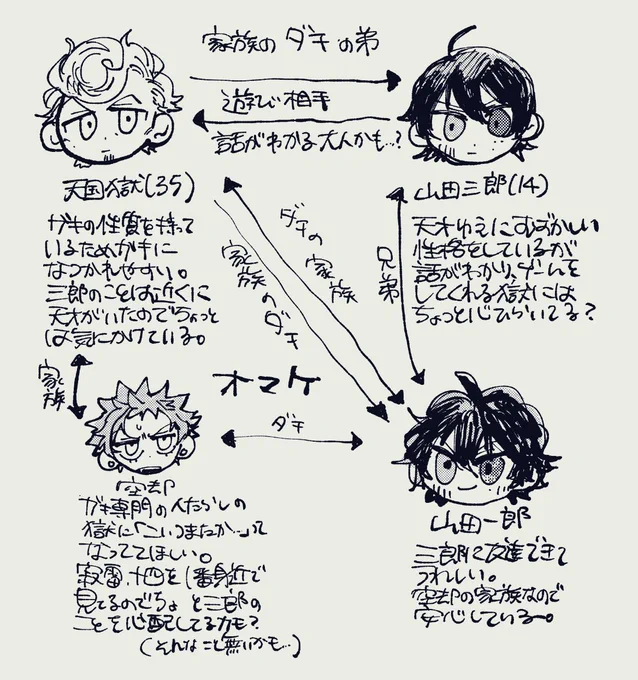 家族のダチの弟
遊び相手
話がわかる大人かも…?
天国獄(35)
ガキの性質を持って
いるためガキに
なつかれやすい。
三郎のことは近くに
天才がいたのでちょっと
は気にかけている。
山田三郎(14)
天才ゆえにむずかしい
性格をしているが
話がわかり、ゲームを
してくれる獄には
ちょっと心ひらいてる?
ダチの家族
家族のダチ
兄弟
家族
オマケ
ダチ
空却
ガキ専門の人たらしの
獄に「こいつまたか…」って
なっててほしい。
寂雷、十四を1番身近で
見てるのでちょっと三郎の
ことを心配してるカモ?
(そんなこと無いかも…)
山田一郎
三郎に友達できて
うれしい。
空却の家族なので
安心している〜。